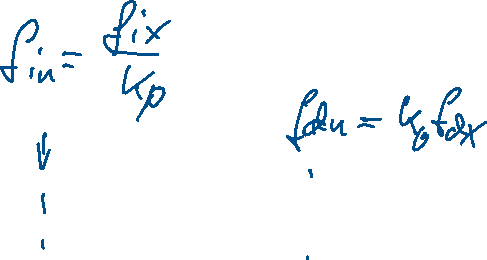 fin = fix / kp
fdn = k0 fdx